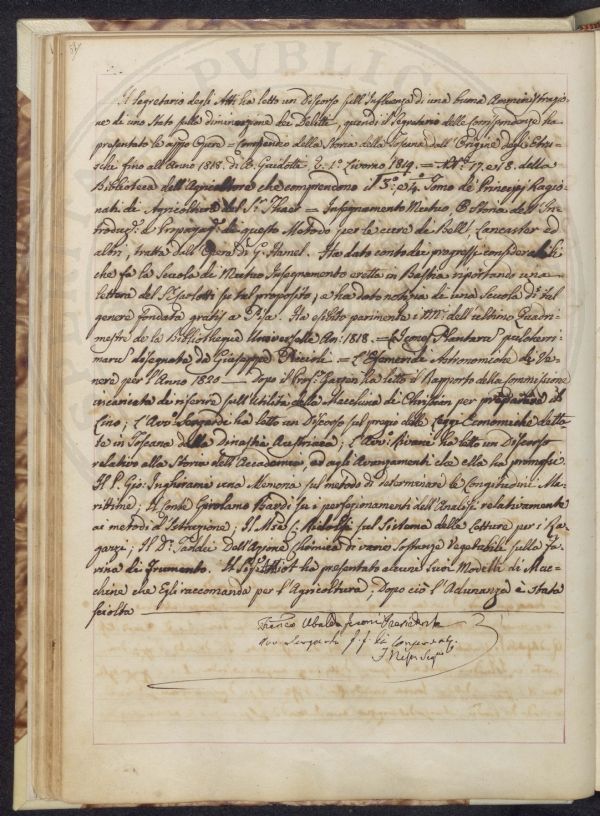 Il Segretario degli Atti ha letto un Discorso sull'Influenza di una buona Amministrazio-
ne di uno Stato sulla diminuzione dei Delitti, quindi il Segretario delle Corrispondenze ha
presentato le appo Opere = Compendio della Storia della Toscana dall'Origine degli Etru-
schi fino all'Anno 1818. di B. Guidotti Livorno 1819. = 17. e 18. della
Biblioteca dell'Agricoltore che comprendono il 3.° e 4.° Tomo de Principj Ragio-
nati di Agricoltura del S.r Thaer = Insegnamento Mutuo, O Storia dell'In-
troduz.e e Propagaz.e di questo Metodo per le cure di Bell, Lancaster ed
altri, tratta dall'Opera di G. Hamel. Ha dato conto dei progressi considerabili
che fa la Scuola di Mutuo Insegnamento eretta in Bastia riportando una
lettera del S.r su tal proposito, e ha dato notizia di una Scuola di tal
genere fondata gratis a Pisa. Ha esibito parimente i dell'ultimo Quadri-
mestre de la Bibliotheque Universelle An: 1818. = Icones Plantarum
disegnata da Giuseppe = L'Efemeride Astronomica di Ve-
nere per l'Anno 1820 — Dopo il Prof. Gazzeri ha letto il Rapporto della Commissione
incaricata di riferire sull'Utilità della Macchina di Christian per preparare il
Lino; L'Avv. ha letto un Discorso sul pregio delle Leggi Economiche detta-
te in Toscana dalla Dinastia Austriaca; L'Avv. ha letto un Discorso
relativo alla Storia dell'Accademia, ed agli Avanzamenti che ella ha promossi.
Il P. Gio: Inghirami una Memoria sul metodo di determinare le Longitudini Ma-
rittime; Il Conte Girolamo Bardi su i perfezionamenti dell'Analisi relativamente
ai metodi d'Istruzione; Il M.se C. Ridolfi sul Sistema delle Letture per i Ra-
gazzi; Il D.r Taddei Dell'Azione Chimica di varie Sostanze Vegetabili sulla Fa-
rina di frumento. Il Sig.r ha presentato alcuni suoi Modelli di Mac-
chine che Egli raccomanda per l'Agricoltura; Dopo ciò l'Adunanza è stata
sciolta
Ubaldo Feroni Presidente